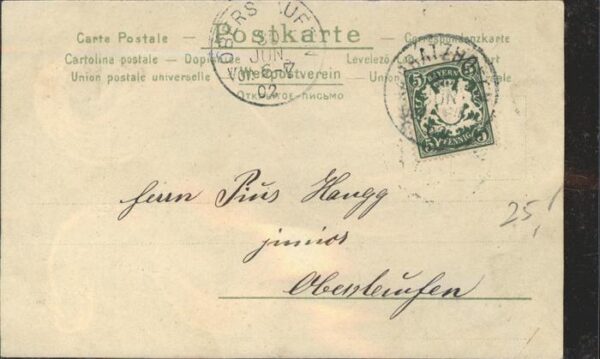 Carte Postale — Postkarte — Correspondenzkarte
Cartolina postale — Levelező
Union postale universelle — Weltpostverein — Union
Открытое письмо
JUN
02
5 BAYERN 5
5 PFENNIG 5
Herrn Pius Haugg
junior
Oberstaufen
25,